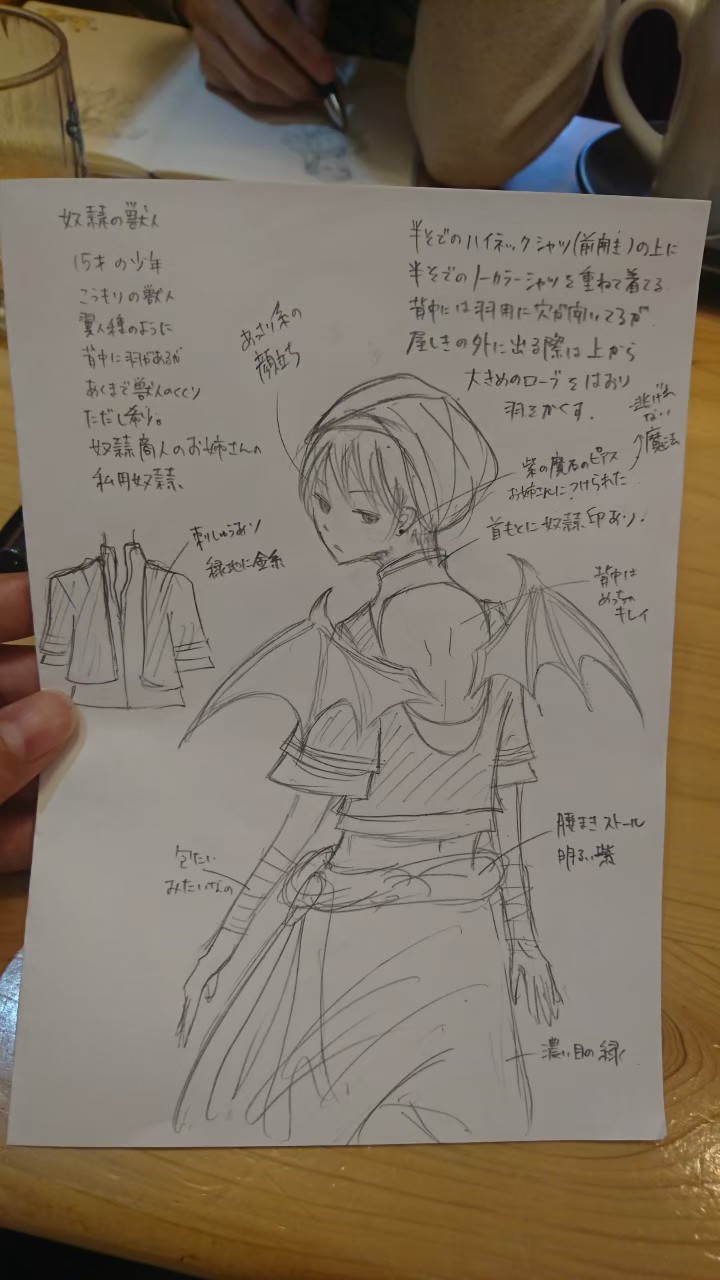 奴隷の獣人
15才の少年
こうもりの獣人
翼人種のように
背中に羽があるが
あくまで獣人のくくり
ただし希少。
奴隷商人のお姉さんの
私用奴隷、
あっさり系の
顔立ち
半そでのハイネックシャツ(前開き)の上に
半そでのノーカラーシャツを重ねて着てる
背中には羽用に穴が開いてるが
屋しきの外に出る際は上から
大きめのローブをはおり
羽をかくす.
逃げれ
ない
魔法
紫の魔石のピアス
お姉さんにつけられた
首もとに奴隷印あり.
刺しゅうあり
緑地に金糸
背中は
めっちゃ
キレイ
腰まきストール
明るい紫
包たい
みたいなの
濃い目の緑